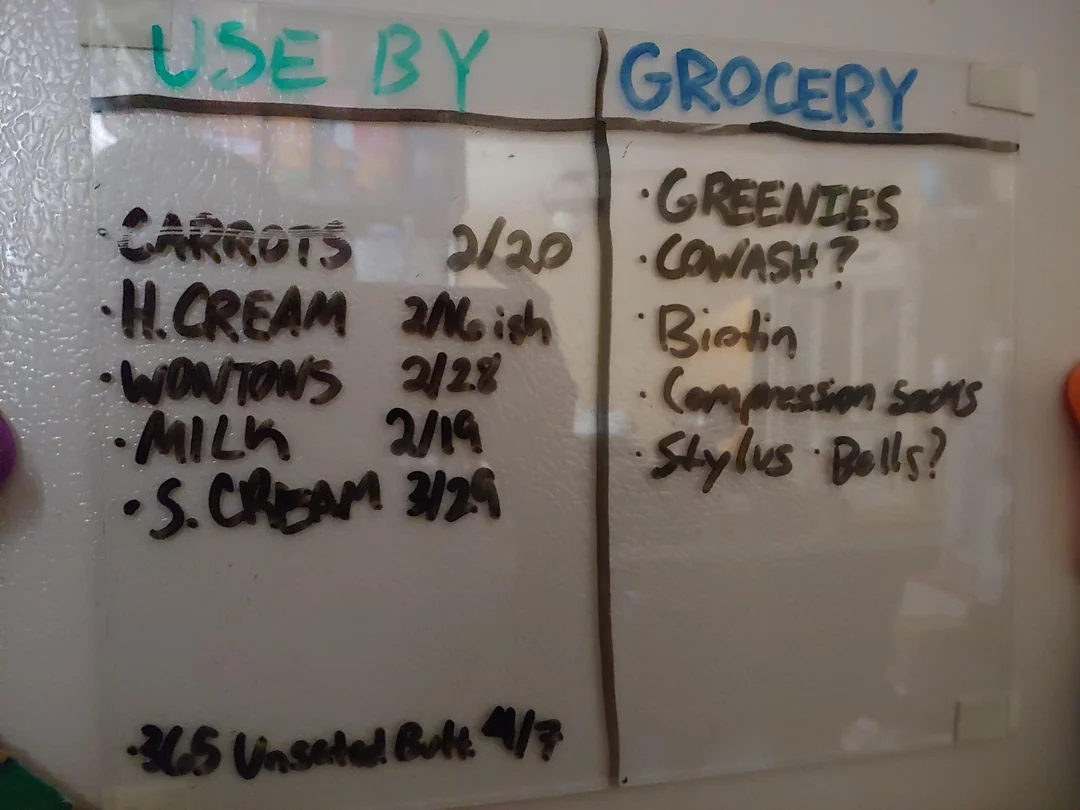 USE BY
· CARROTS 2/20
· H. CREAM 2/16 ish
· WONTONS 2/28
· MILK 2/19
· S. CREAM 3/29
· 365 Unsated Butt. 4/7
GROCERY
· GREENIES
· COWASH?
· Biotin
· Compression socks
· Stylus · Bells?